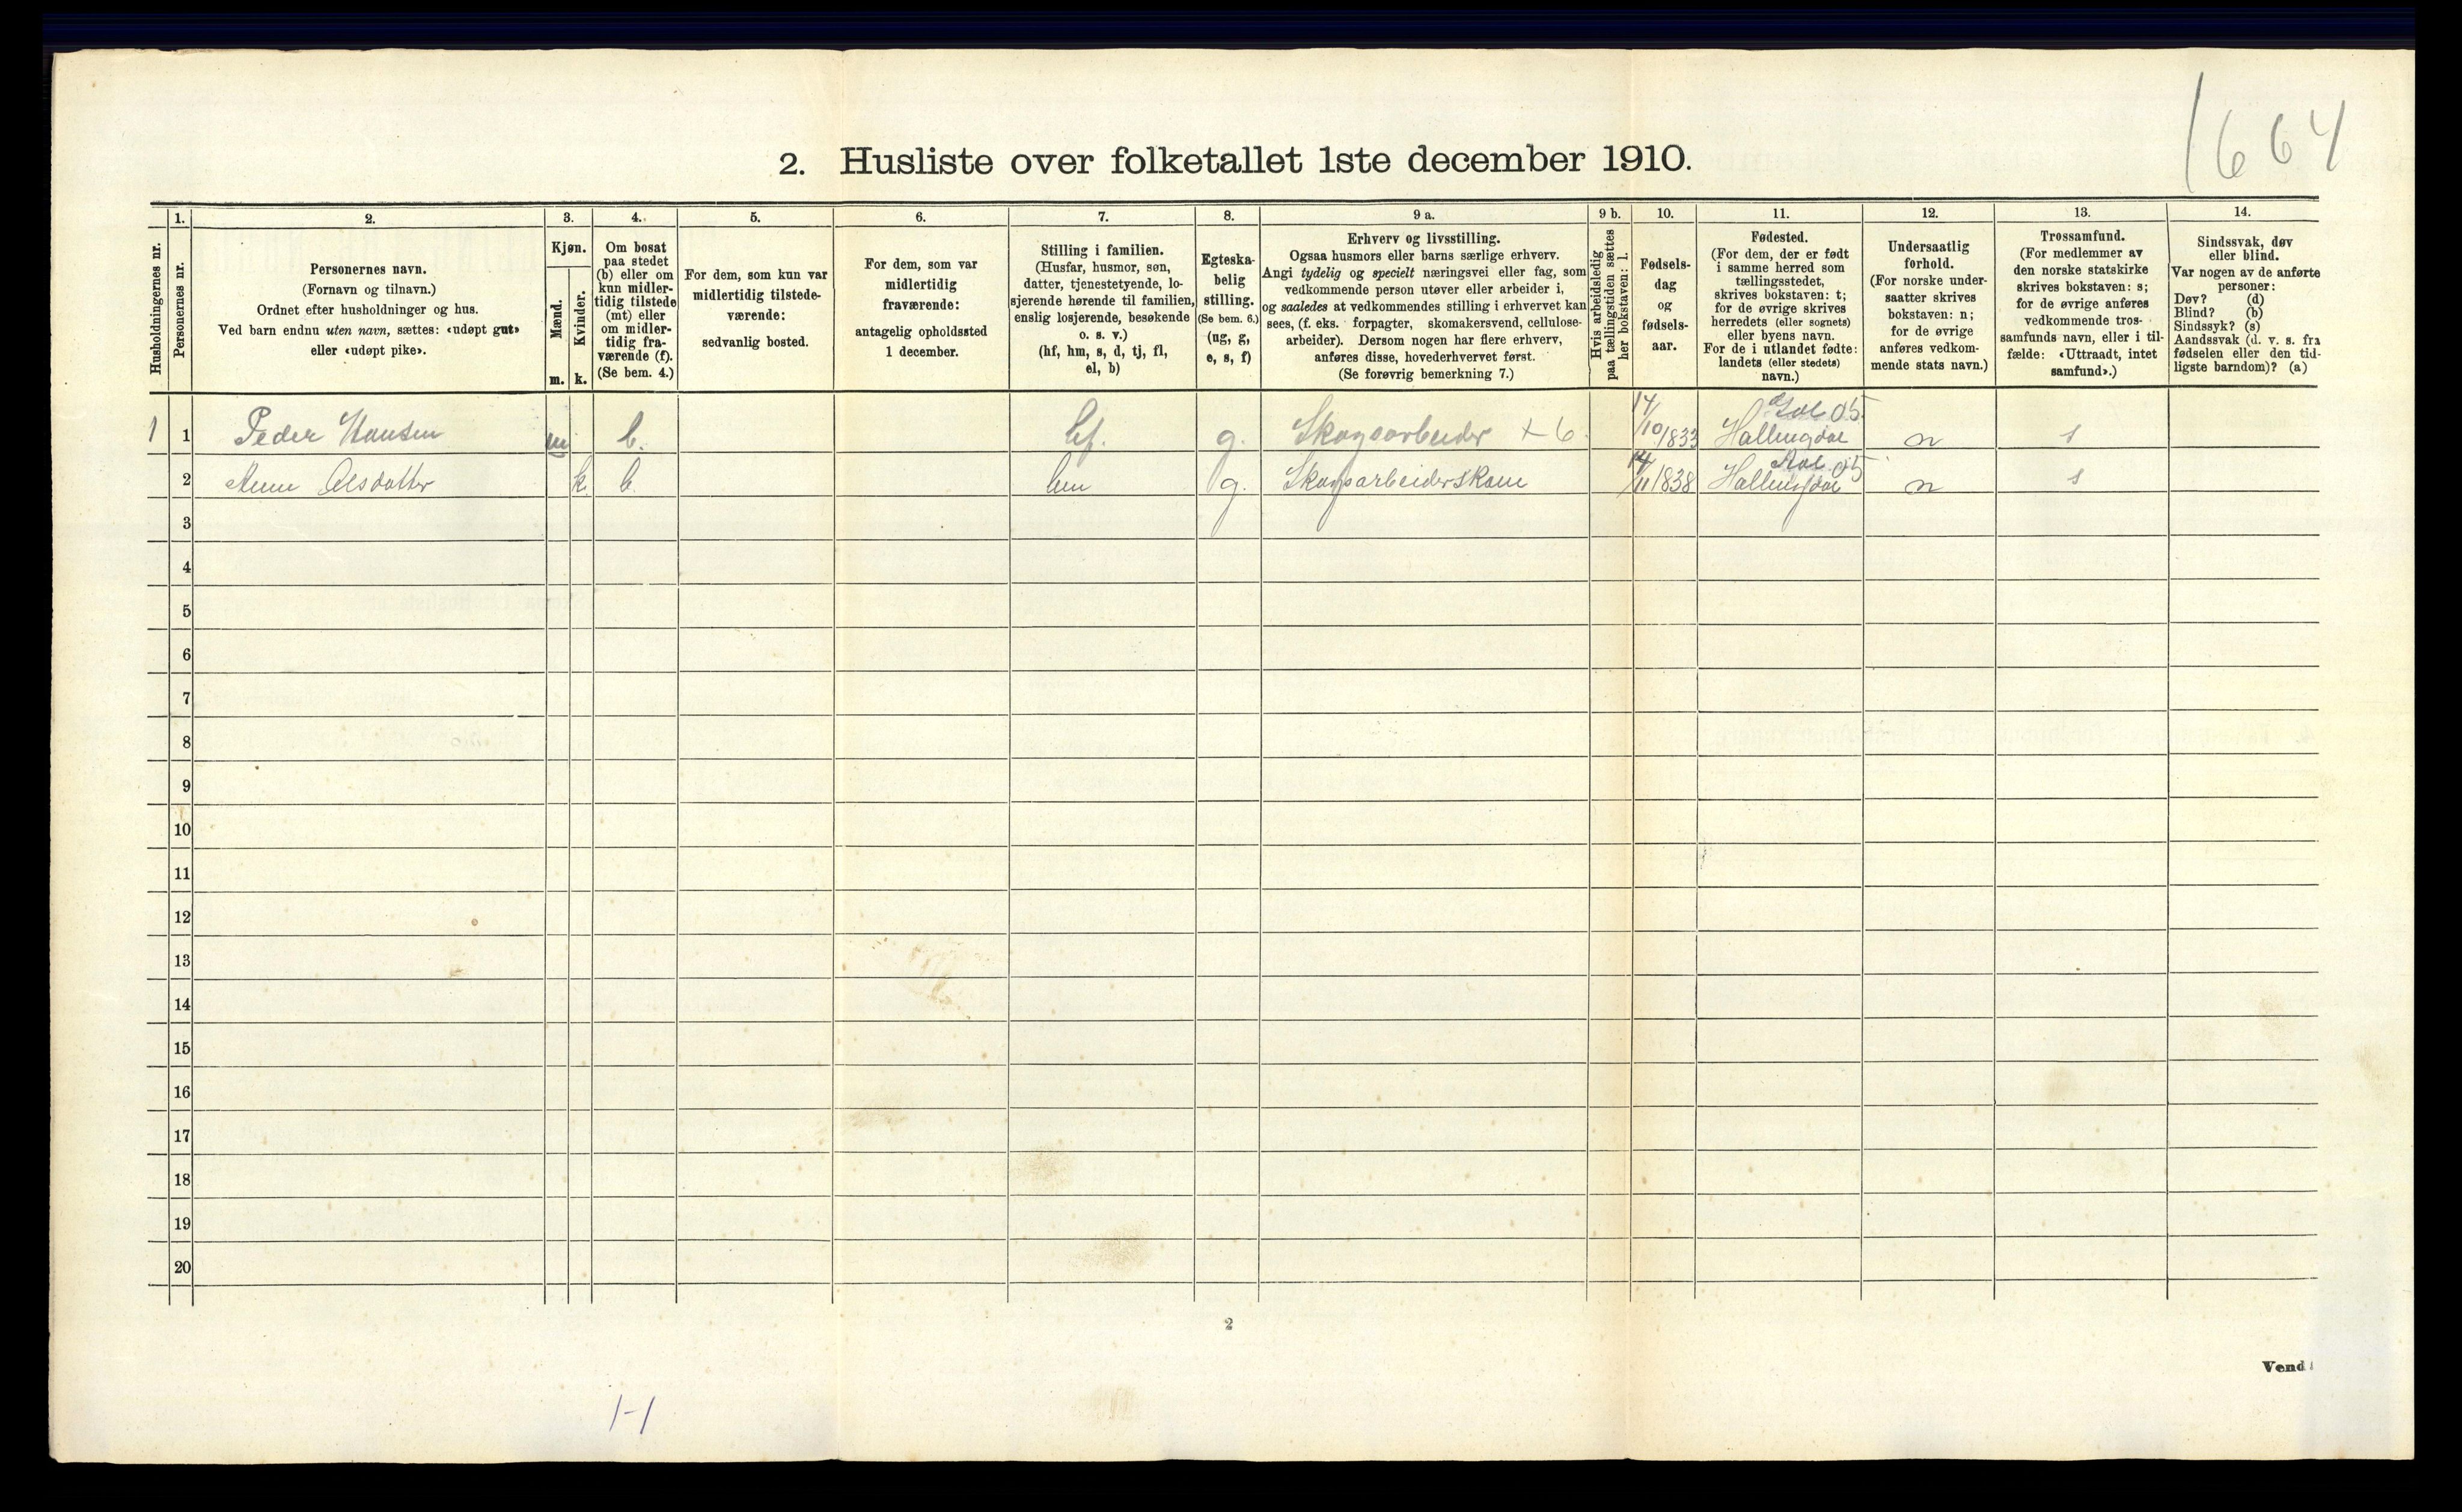 1664
2. Husliste over folketallet 1ste december 1910.
Husholdningernes nr.
1.
Personernes nr.
2.
Personernes navn.
(Fornavn og tilnavn.)
Ordnet efter husholdninger og hus.
Ved barn endnu uten navn, sættes: «udøpt gut»
eller «udøpt pike».
3.
Kjøn.
Mænd.
Kvinder.
m. k.
4.
Om bosat
paa stedet
(b) eller om
kun midler-
tidig tilstede
(mt) eller
om midler-
tidig fra-
værende (f).
(Se bem. 4.)
5.
For dem, som kun var
midlertidig tilstede-
værende:
sedvanlig bosted.
6.
For dem, som var
midlertidig
fraværende:
antagelig opholdssted
1 december.
7.
Stilling i familien.
(Husfar, husmor, søn,
datter, tjenestetyende, lo-
sjerende hørende til familien,
enslig losjerende, besøkende
o. s. v.)
(hf, hm, s, d, tj, fl,
el, b)
8.
Egteska-
belig
stilling.
(Se bem. 6.)
(ug, g,
e, s, f)
9 a.
Erhverv og livsstilling.
Ogsaa husmors eller barns særlige erhverv.
Angi tydelig og specielt næringsvei eller fag, som
vedkommende person utøver eller arbeider i,
og saaledes at vedkommendes stilling i erhvervet kan
sees, (f. eks. forpagter, skomakersvend, cellulose-
arbeider). Dersom nogen har flere erhverv,
anføres disse, hovederhvervet først.
(Se forøvrig bemerkning 7.)
9 b.
Hvis arbeidsledig
paa tællingstiden sættes
her bokstaven: l.
10.
Fødsels-
dag
og
fødsels-
aar.
11.
Fødested.
(For dem, der er født
i samme herred som
tællingsstedet,
skrives bokstaven: t;
for de øvrige skrives
herredets (eller sognets)
eller byens navn.
For de i utlandet fødte:
landets (eller stedets)
navn.)
12.
Undersaatlig
forhold.
(For norske under-
saatter skrives
bokstaven: n;
for de øvrige
anføres vedkom-
mende stats navn.)
13.
Trossamfund.
(For medlemmer av
den norske statskirke
skrives bokstaven: s;
for de øvrige anføres
vedkommende tros-
samfunds navn, eller i til-
fælde: «Uttraadt, intet
samfund».)
14.
Sindssvak, døv
eller blind.
Var nogen av de anførte
personer:
Døv? (d)
Blind? (b)
Sindssyk? (s)
Aandssvak (d. v. s. fra
fødselen eller den tid-
ligste barndom)? (a)
1 1 Peder Hansen m b. hf. g. Skogsarbeider +6. 14/10 1833 Gol 05 Hallingdal n s
2 Anne Olsdatter k b hm g. Skogsarbeiderskone 14/11 1838 05 Hallingdal n s
3
4
5
6
7
8
9
10
11
12
13
14
15
16
17
18
19
20
2
Vend
1-1